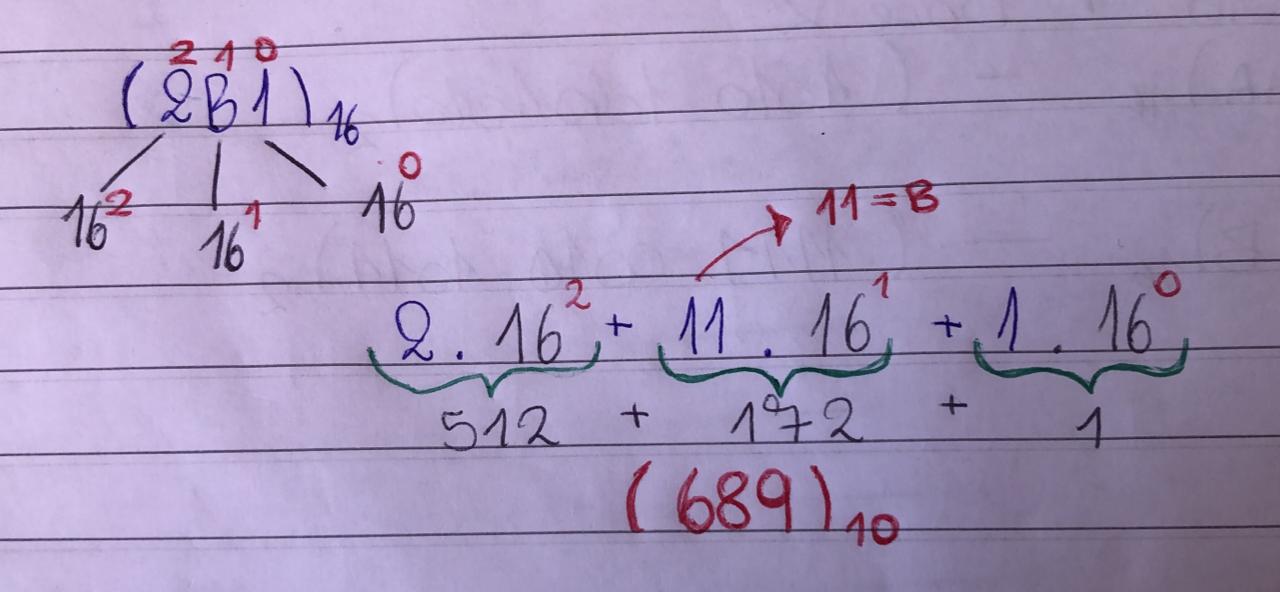 2 1 0
(2B1)₁₆
16² 16¹ 16⁰
11 = B
2 . 16² + 11 . 16¹ + 1 . 16⁰
512 + 172 + 1
(689)₁₀